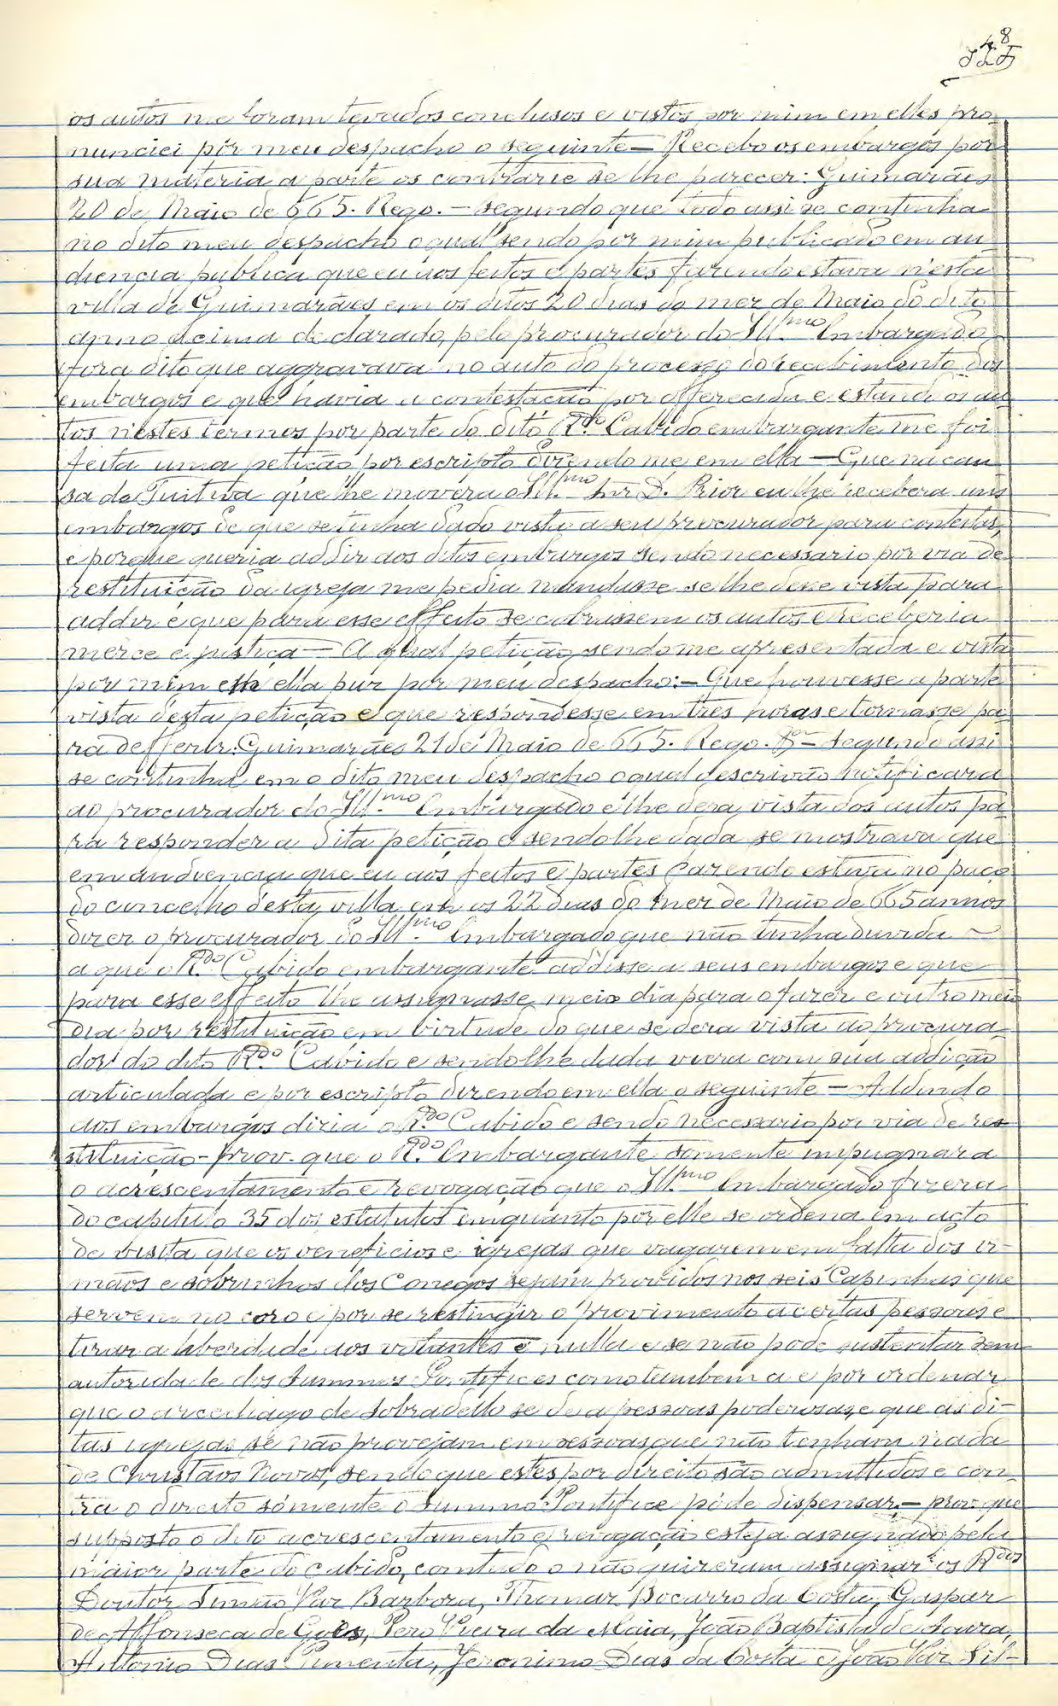 os autos me foram levados conclusos e vistos por mim em elles pro-
nunciei por meu despacho o seguinte — Recebo os embargos por
sua materia a parte os contrarie se lhe parecer: Guimarães
20 de Maio de 665. Rego. — segundo que todo assi se continha
no dito meu despacho o qual sendo por mim publicado em au-
diencia publica que eu aos feitos e partes fazendo estava n'esta
villa de Guimarães em os ditos 20 dias do mez de Maio do dito
anno acima declarado, pelo procurador do Ill.mo Embargado
fora dito que aggravava no auto do processo do recebimento dos
embargos e que havia a contestação por offerecida e estando os au-
tos n'estes termos por parte do dito R.do Cabido embargante me foi
feita uma petição por escripto dizendo me em ella — Que na cau-
sa da Tuitiva que lhe movera o Ill.mo Snr D. Prior eu lhe recebera uns
embargos de que se tinha dado vista a seu procurador para contestar,
e porque queria addir aos ditos embargos sendo necessario por via de
restituição da igreja me pedia mandasse se lhe desse vista para
addir e que para esse effeito se cobrassem os autos e receberia
merce e justiça — A qual petição, sendo me apresentada e vista
por mim em ella puz por meu despacho: — Que houvesse a parte
vista desta petição e que respondesse em tres horas e tornasse pa-
ra defferir: Guimarães 21 de Maio de 665. Rego. — segundo assi
se continha em o dito meu despacho o qual o escrivão notificara
ao procurador do Ill.mo Embargado e lhe dera vista dos autos pa-
ra responder a dita petição e sendo lhe dada se mostrava que
em audiencia que eu aos feitos e partes fazendo estava no paço
do concelho desta villa em os 22 dias do mez de Maio de 665 annos
dizer o procurador do Ill.mo Embargado que não tinha duvida
a que o R.do Cabido embargante addisse a seus embargos e que
para esse effeito lhe assignasse meio dia para o fazer e outro meio
dia por restituição em virtude do que se dera vista ao procura-
dor do dito R.do Cabido e sendo lhe dada viera com sua addição
articulada e por escripto dizendo em ella o seguinte — Addindo
aos embargos diria o R.do Cabido e sendo necessario por via de res-
stituição - prov. que o R.do Embargante somente impugnara
o acrescentamento e revogação que o Ill.mo Embargado fizera
do capitulo 35 dos estatutos emquanto por elle se ordena em acto
de visita que os beneficios e igrejas que vagarem em falta dos ir-
mãos e sobrinhos dos Conegos sejam providos nos seis Capinhas que
servem no coro e por se restingir o provimento a certas pessoas e
tirar a liberdade aos votantes é nulla e se não pode sustentar sem
autoridade dos Summos Pontifices como tambem a e por ordenar
que o arcediago de Sobradello se dê a pessoas poderosas, e que as di-
tas igrejas se não provejam em pessoas que não tenham nada
de Christãos Novos, sendo que estes por direito são admittidos e con-
tra o direito sómente o Summo Pontifice póde dispensar. — prov. que
supposto o dito acrescentamento e revogação esteja assignado pela
maior parte do cabido, comtudo o não quizeram assignar os R.dos
Doutor Simão Vaz Barbosa, Thomaz Bocarro da Costa, Gaspar
de Affonseca de Goes, Pero Vieira da Maia, João Baptista de Saura,
Antonio Dias Pimenta, Jeronimo Dias da Costa e João Vaz Sil-